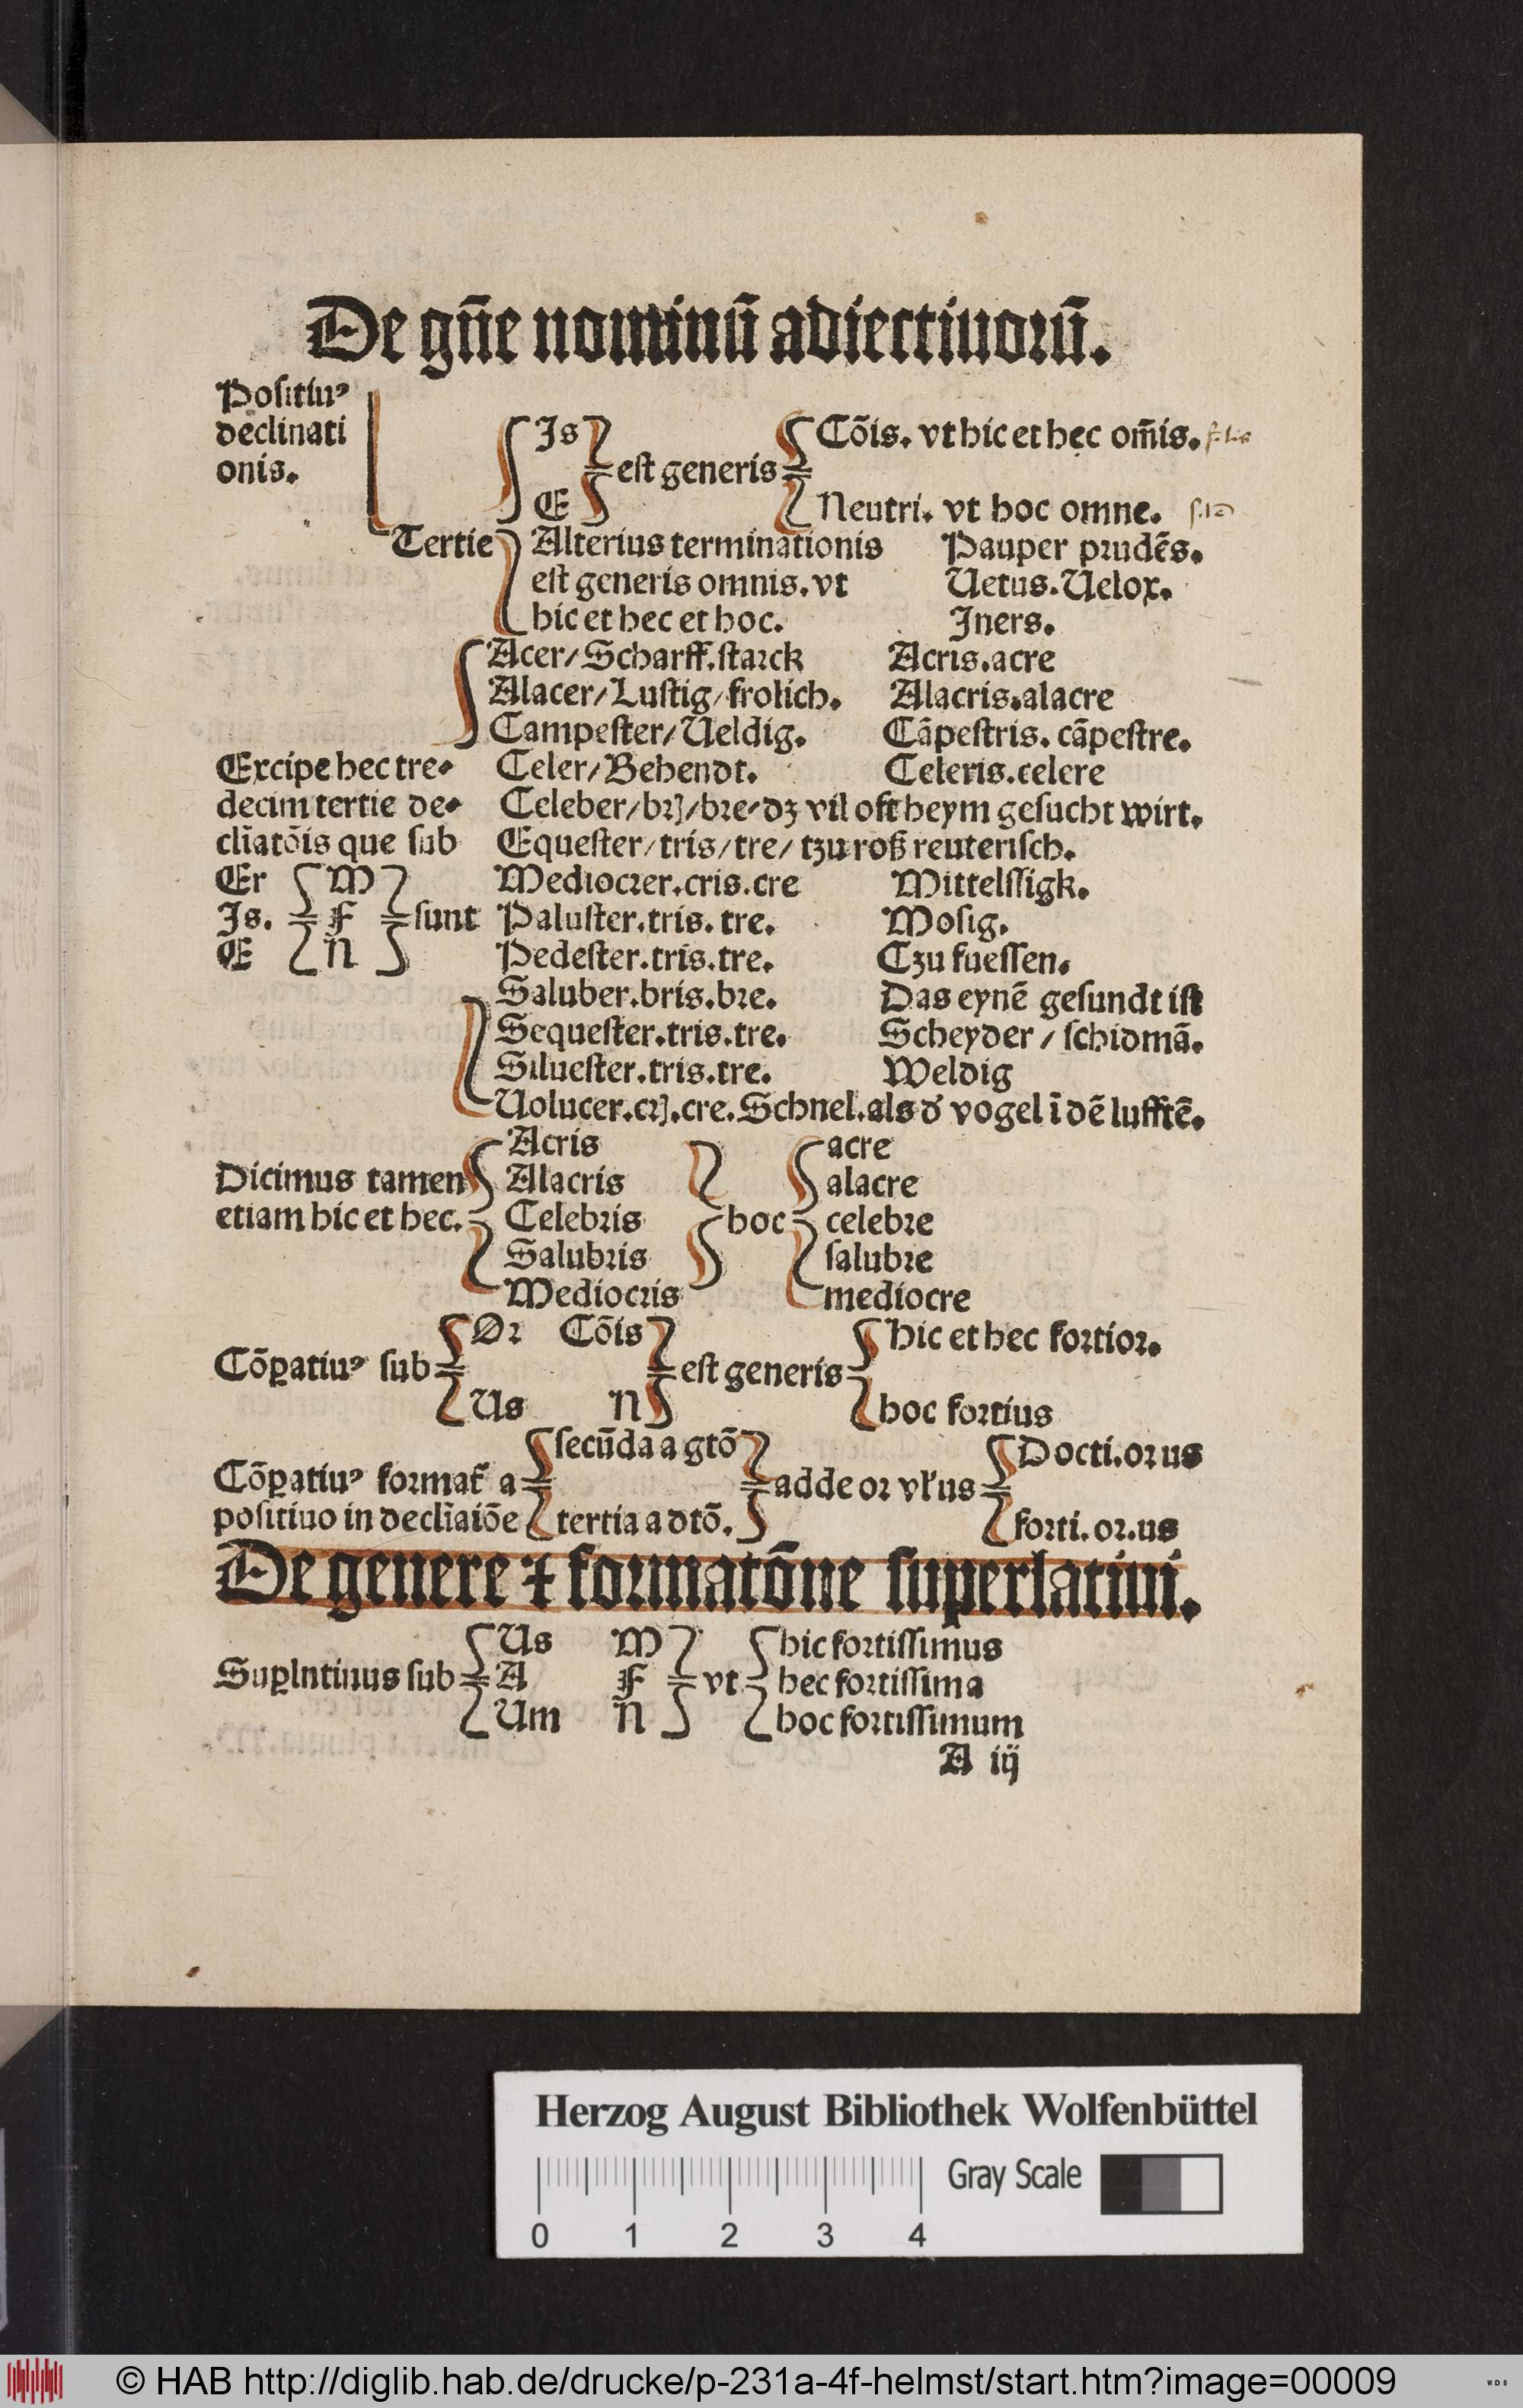 De gn̄e nominū adiectiuoꝝū.
Poſitiuꝰ
declinati
onis.
Is
E
eſt generis
Cōis. vt hic et hęc om̄is.
Neutri. vt hoc omne.
Tertie
Alterius terminationis
eſt generis omnis. vt
hic et hec et hoc.
Pauper prudēs.
Uetus. Uelox.
Iners.
Acer/ Scharff. ſtarck Acris. acre
Alacer/ Luſtig/ frolich. Alacris. alacre
Campeſter/ Ueldig. Cāpeſtris. cāpeſtre.
Excipe hec tre⸗ Celer/ Behendt. Celeris. celere
decim tertie de⸗ Celeber/ brꝭ/ bre/ dꝫ vil oft heym geſucht wirt.
cliatōis que ſub Equeſter/ tris/ tre/ tzu roß reuteriſch.
Er M Mediocrer. cris. cre Mittelſſigk.
Is. F ſunt Paluſter. tris. tre. Moſig.
E N Pedeſter. tris. tre. Czu fueſſen.
Saluber. bris. bre. Das eynē geſundt iſt
Sequeſter. tris. tre. Scheyder / ſchidmā.
Silueſter. tris. tre. Weldig
Uolucer. crꝭ. cre. Schnel. als d' vogel ī dē lufftē.
Acris acre
Dicimus tamen Alacris alacre
etiam hic et hec. Celebris hoc celebre
Salubris ſalubre
Mediocris mediocre
Or Cōis hic et hec fortior.
Cōꝑatiuꝰ ſub eſt generis
Us N hoc fortius
ſecūda a gtō Docti. or us
Cōꝑatiuꝰ format̄ a adde or vł us
poſitiuo in decliaiōe tertia a dtō. forti. or. us
De genere ⁊ formatōne ſuperlatiui.
Us M hic fortiſſimus
Suꝑlntiuus ſub A F vt hec fortiſſima
Um N hoc fortiſſimum
A iij
Herzog August Bibliothek Wolfenbüttel
Gray Scale
0 1 2 3 4
© HAB http://diglib.hab.de/drucke/p-231a-4f-helmst/start.htm?image=00009
WDB